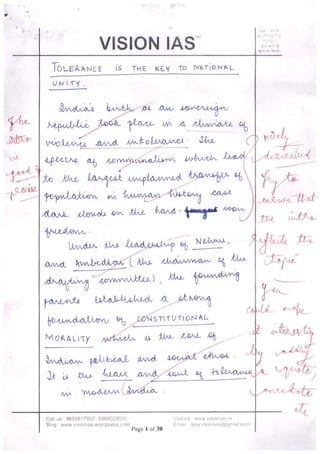 VISION IAS™
TOLERANCE IS THE KEY TO NATIONAL
UNITY.
India's birth as an sovereign
republic took place in a climate of
violence and intolerance. The
spectre of communalism which lead
to the largest unplanned transfer of
population in human history cast
dark clouds on the hard - won
freedom.
Under the leadership of Nehru,
and Ambedkar (the chairman of the
drafting committee), the founding
parents established a strong
foundation of CONSTITUTIONAL
MORALITY which is the core of
Indian political and social ethos.
It is the heart and soul of tolerance
in modern India.
The
intro
is
good &
precise
nicely
described
Try to
ensure that
the intro
reflects the
topic
You
could make
it interesting
by adding
a quote,
anecdote
etc
Call us : 9650617807, 9968029039
Visit us : www.visionias.in
Blog : www.visionias.wordpress.com
Email : ajay.visionias@gmail.com
Page 1 of 30